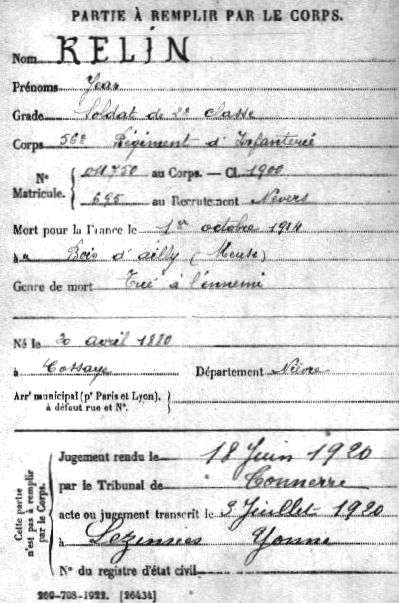 PARTIE À REMPLIR PAR LE CORPS.
Nom KELIN
Prénoms Jean
Grade Soldat de 2e classe
Corps 56e Régiment d'Infanterie
N° Matricule. { 011750 au Corps. — Cl. 1900
695 au Recrutement Nevers
Mort pour la France le 1er octobre 1914
à Bois d'ailly (Meuse)
Genre de mort Tué à l'ennemi
Né le 20 avril 1880
à Cossaye Département Nièvre
Arr' municipal (pr Paris et Lyon), à défaut rue et N°. }
Cette partie n'est pas à remplir par le Corps. { Jugement rendu le 18 Juin 1920
par le Tribunal de Tonnerre
acte ou jugement transcrit le 3 Juillet 1920
à Lezinnes Yonne
N° du registre d'état civil
269-708-1922. [26434]